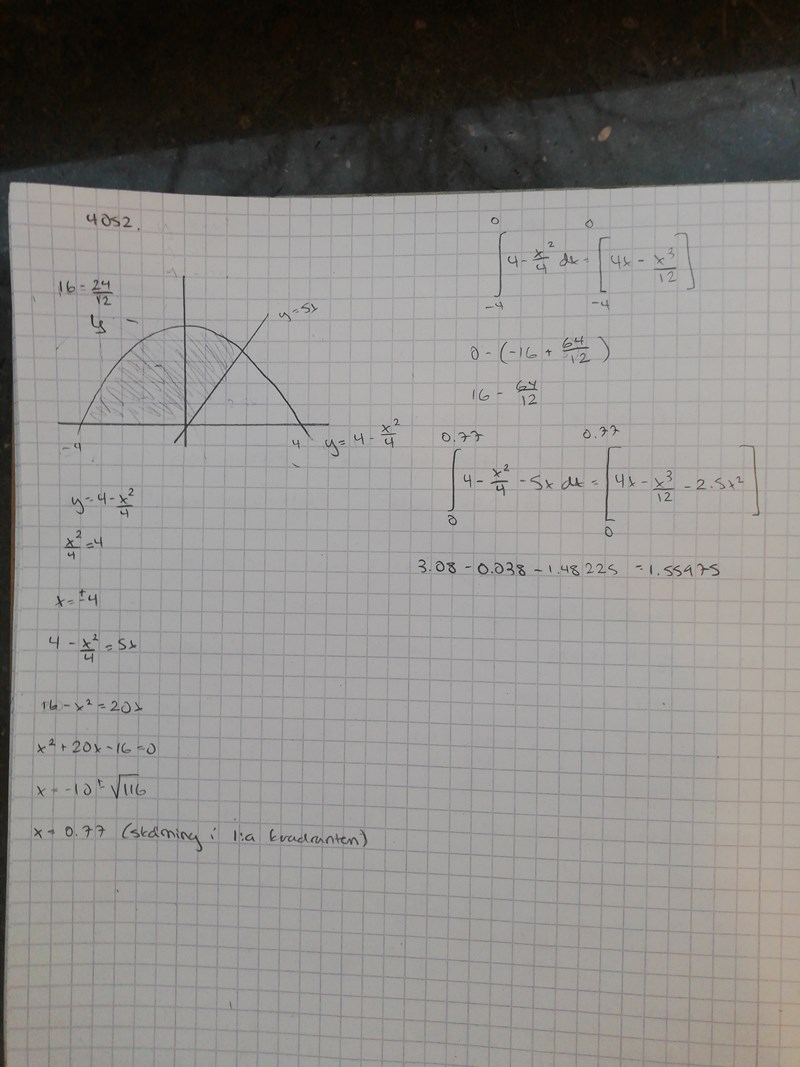 4052.
16 - 24/12
y
y=5x
-4
4
y = 4 - x²/4
y = 4 - x²/4
x²/4 = 4
x = ±4
4 - x²/4 = 5x
16 - x² = 20x
x² + 20x - 16 = 0
x = -10 ± √116
x = 0.77 (skärning i 1:a kvadranten)
∫₋₄⁰ 4 - x²/4 dx = [4x - x³/12]₋₄⁰
0 - (-16 + 64/12)
16 - 64/12
∫₀^0.77 4 - x²/4 - 5x dx = [4x - x³/12 - 2.5x²]₀^0.77
3.08 - 0.038 - 1.48225 = 1.55975